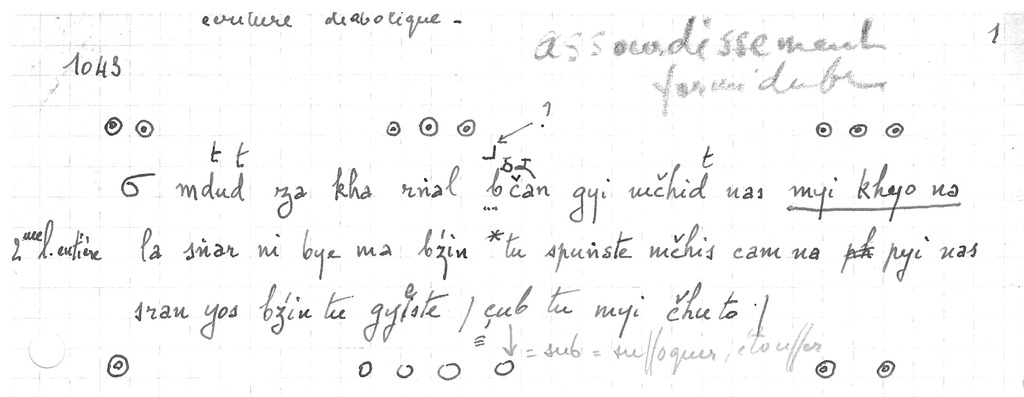 écriture diabolique -
1
assourdissement
formidable
1043
?
t t t
σ mdud za kha rṅal bčan gyi mčhid nas myi khyo na
2me l. entière la sṅar ni bye ma bźin *tu spuṅste mčhis cam na ph pyi nas
sran yos bźin tu gyeste / çub tu myi čhuto /
= sub = suffoquer, étouffer